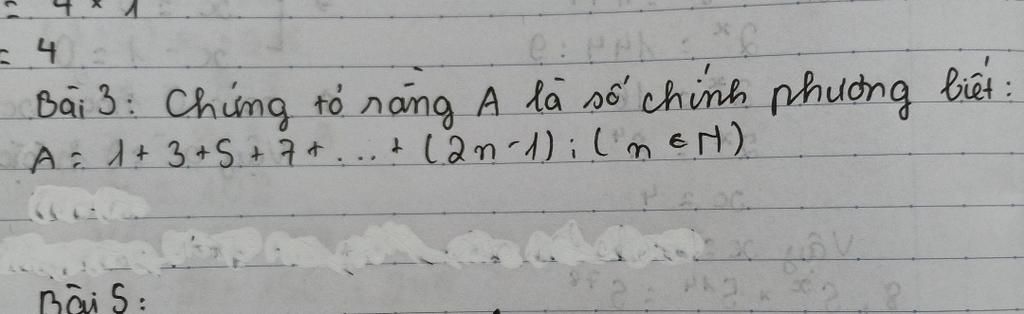 = 4 × 1
= 4
Bài 3: Chứng tỏ rằng A là số chính phương biết:
A = 1 + 3 + 5 + 7 + ... + (2n - 1); (n ∈ N)
Bài 5: